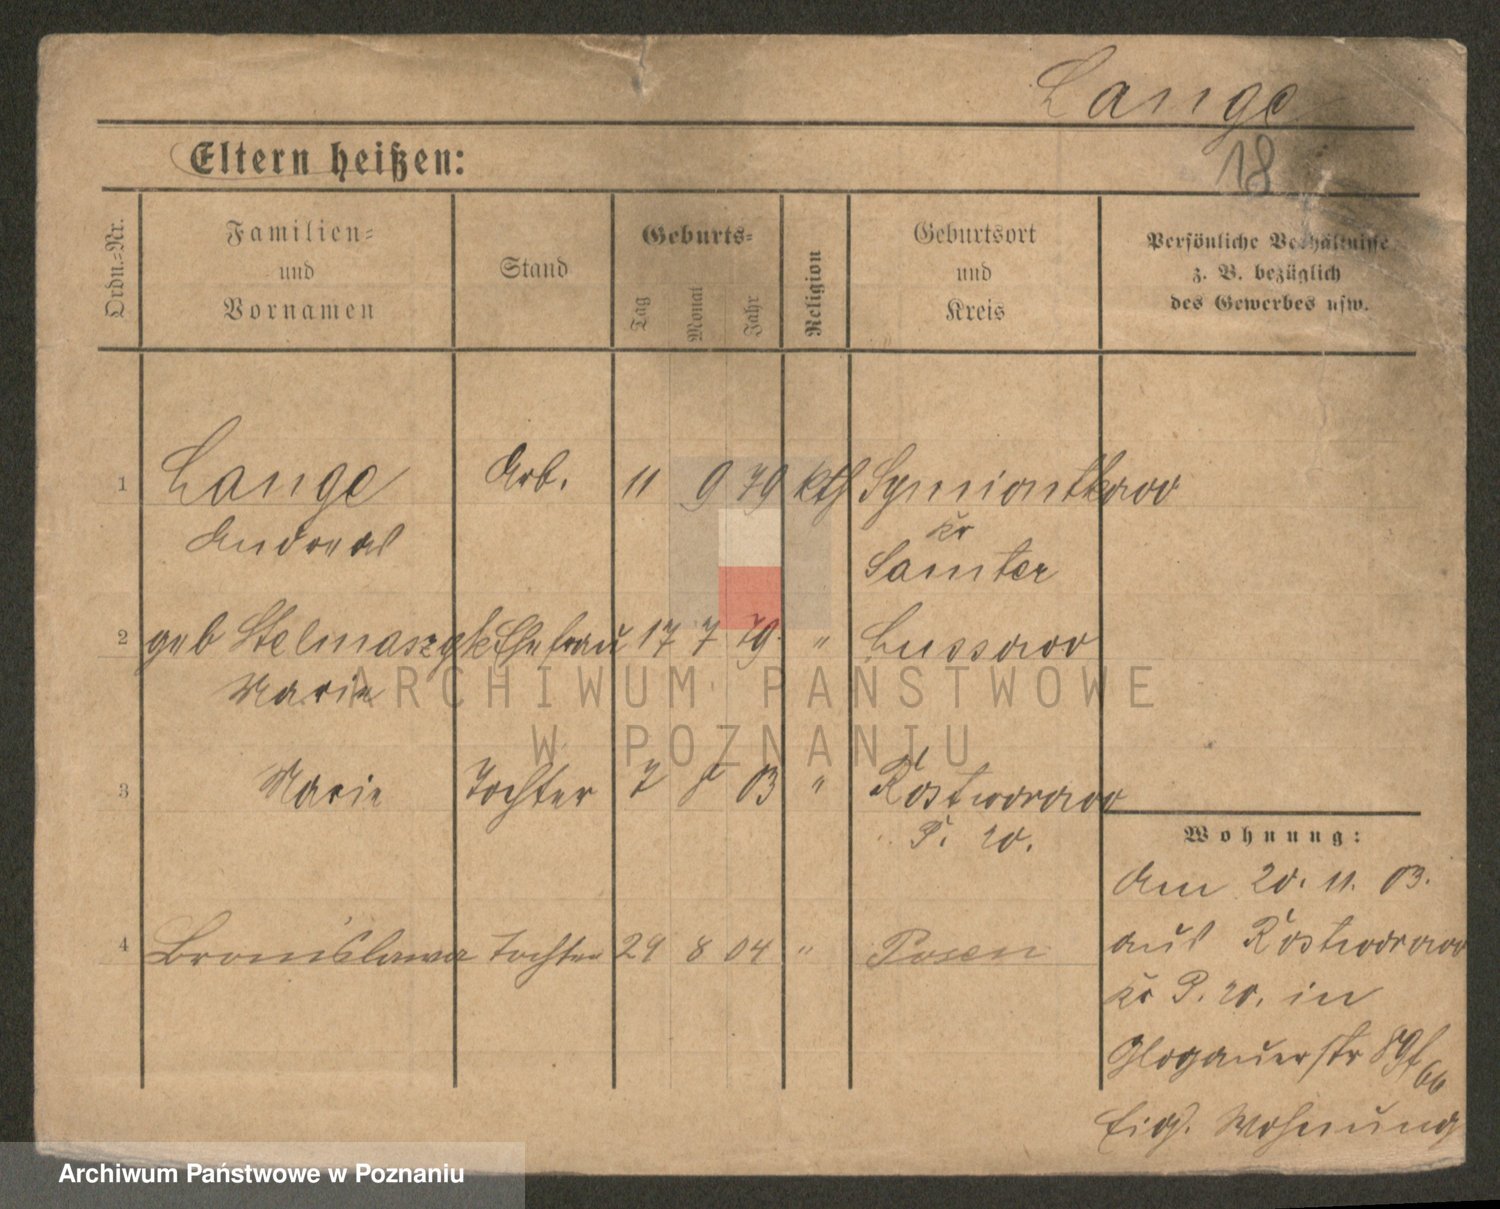 Lange
18
Eltern heißen:
Ordn.-Nr.
Familien-
und
Vornamen
Stand
Geburts-
Tag
Monat
Jahr
Religion
Geburtsort
und
Kreis
Persönliche Verhältnisse
z. B. bezüglich
des Gewerbes usw.
1 Lange Arb. 11 9 79 kth Szymiontkowo
Andreas kr
Samter
2 geb Stelmaszyk Ehefrau 17 7 79 " Lussowo
Marie
3 Marie Tochter 7 8 03 " Rostworowo
P. W.
4 Bronislawa Tochter 29 8 04 " Posen
Wohnung:
Am 20. 11. 03.
aus Rostworowo
kr P. W. in
Glogauerstr 89 f
66
Eig. Wohnung
ARCHIWUM PAŃSTWOWE
W POZNANIU
Archiwum Państwowe w Poznaniu